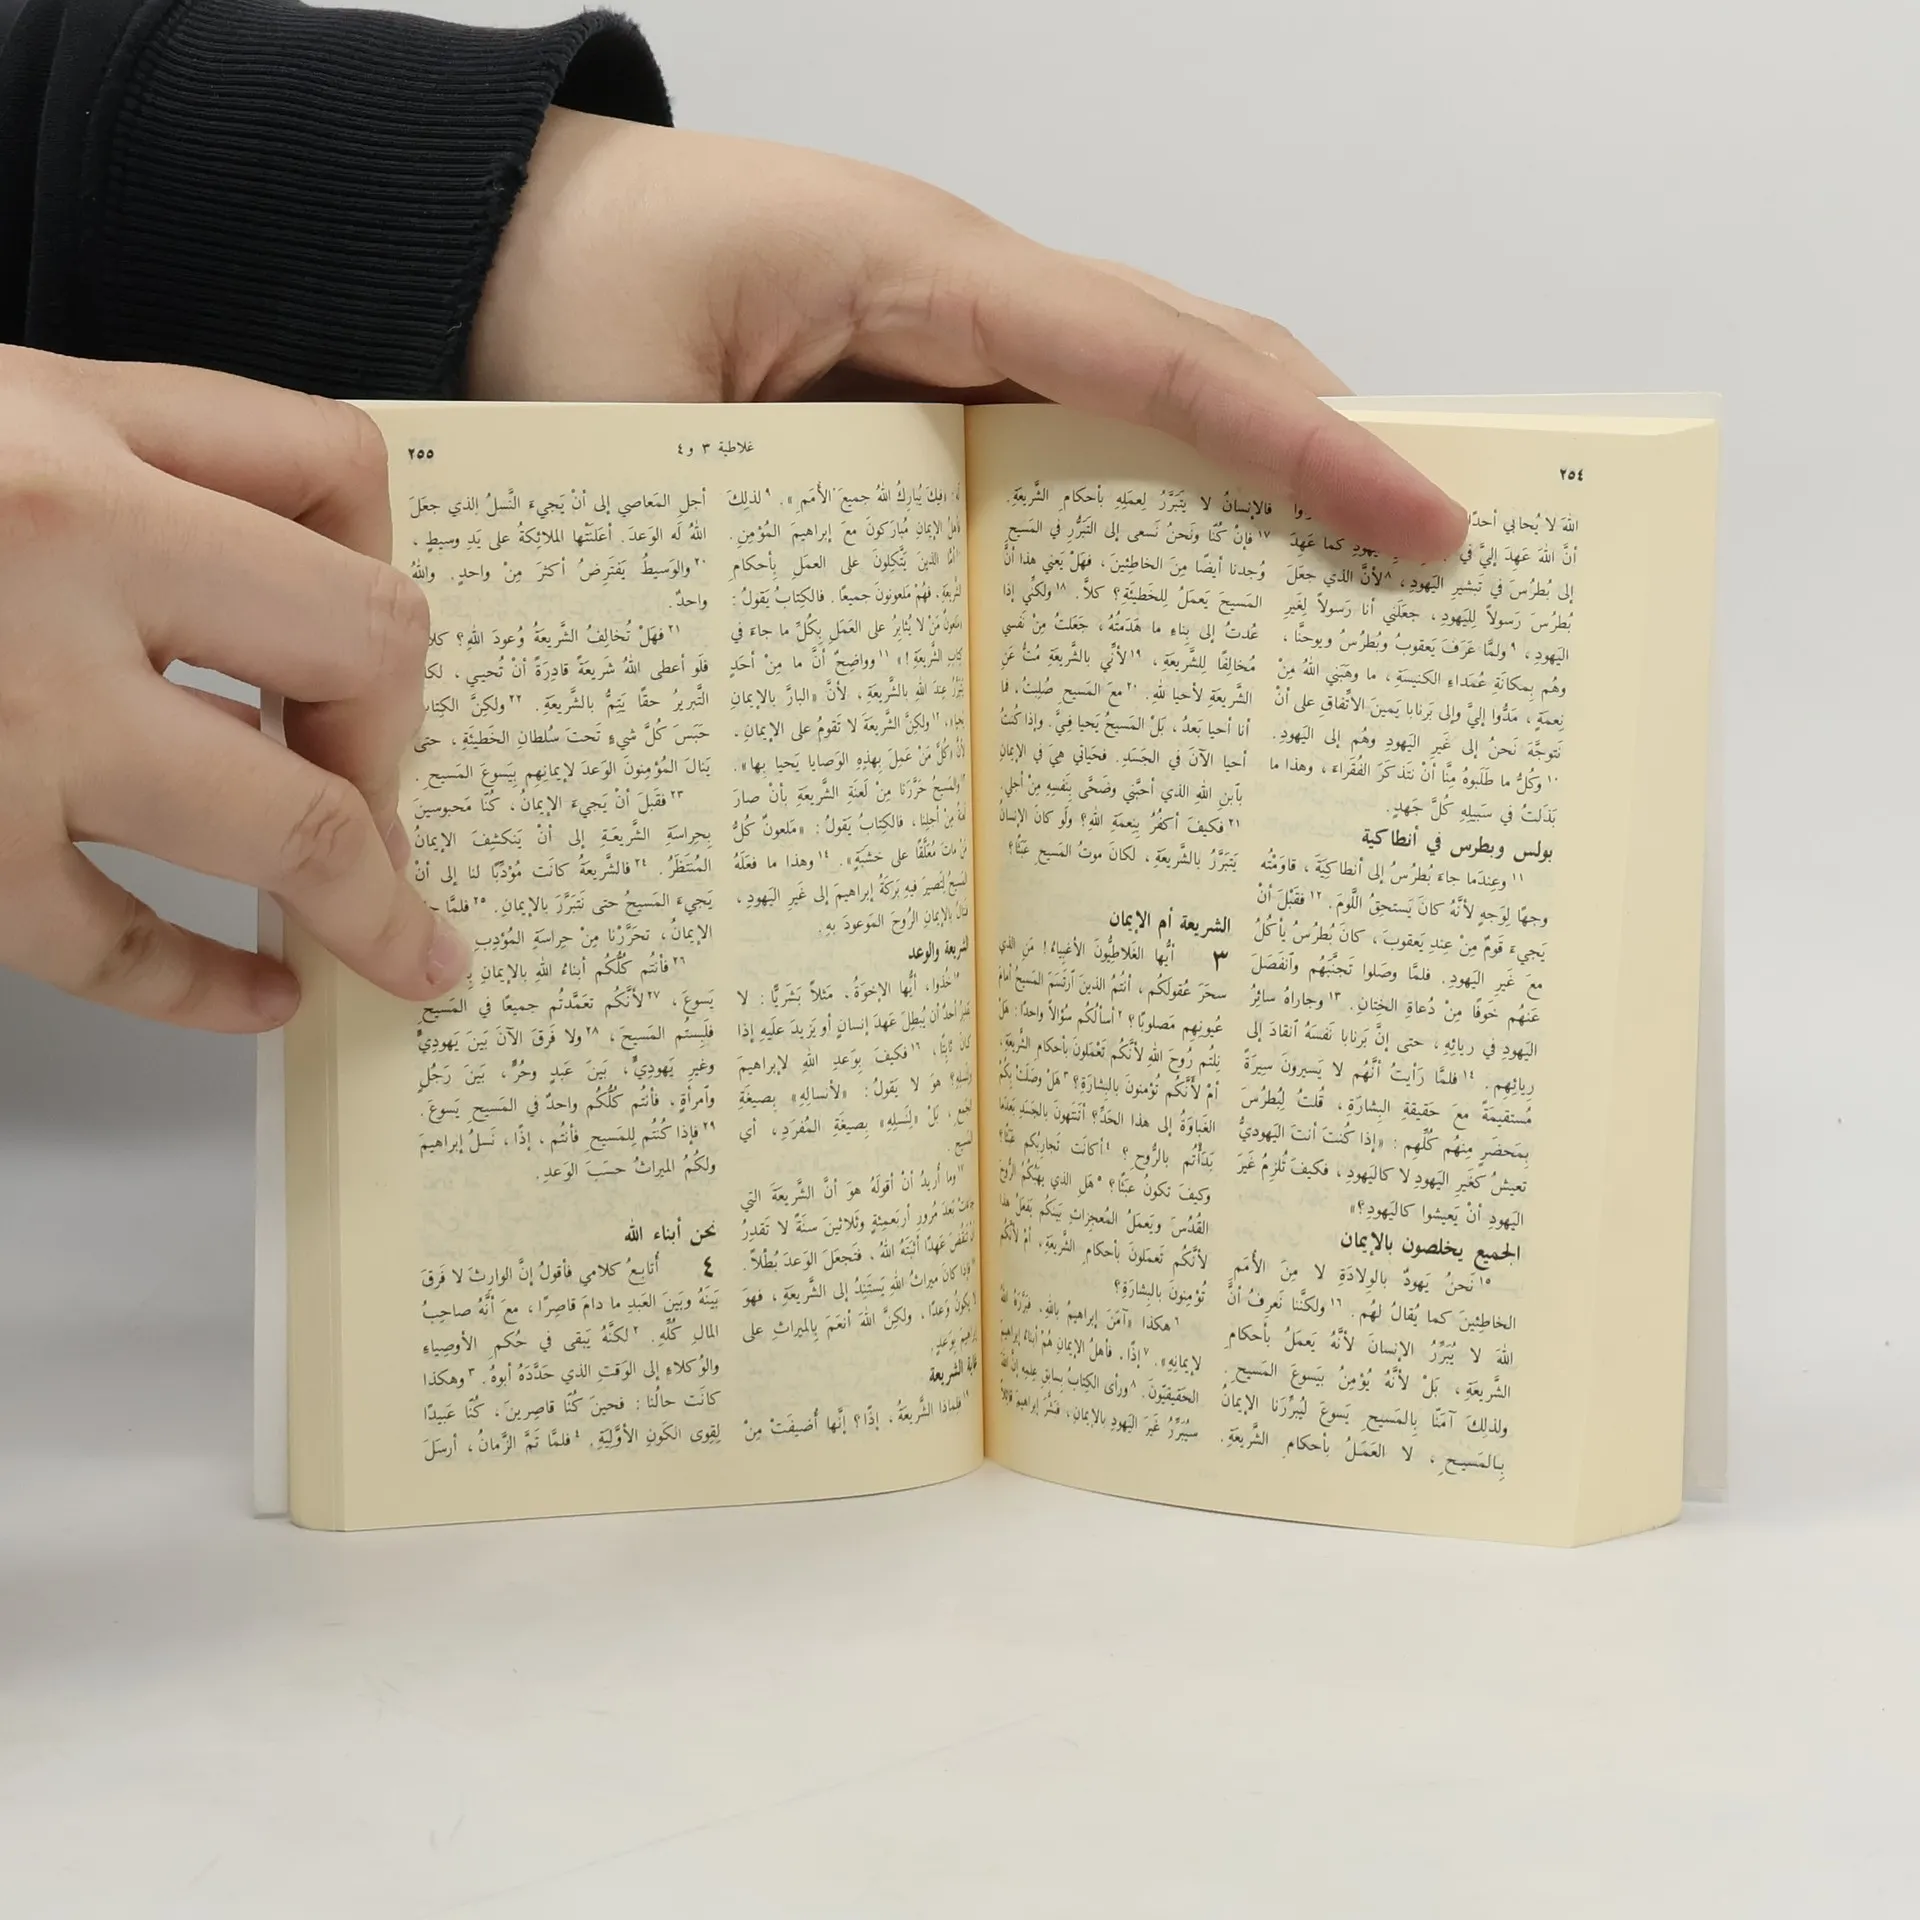 ٢٥٤
الله لا يُحابي أحدًا
أنَّ اللهَ عَهِدَ إليَّ في اليَهودِ كما عَهِدَ
إلى بُطرُسَ في تَبشيرِ اليَهودِ، ٨لأنَّ الذي جعَلَ
بُطرُسَ رَسولاً لِليَهودِ، جعَلَني أنا رَسولاً لِغَيرِ
اليَهودِ، ٩ولمَّا عَرَفَ يَعقوبُ وبُطرُسُ ويوحنَّا،
وهُم بِمكانَةِ عُمَداءِ الكنيسَةِ، ما وهَبَني اللهُ مِنْ
نِعمَةٍ، مَدُّوا إليَّ وإلى بَرنابا يَمينَ الاتِّفاقِ على أنْ
نَتوجَّهَ نَحنُ إلى غَيرِ اليَهودِ وهُم إلى اليَهودِ.
١٠وكُلُّ ما طَلَبوهُ مِنَّا أنْ نَتذكَرَ الفُقَراءَ، وهذا ما
بَذَلتُ في سَبيلِهِ كُلَّ جَهدٍ.
بولس وبطرس في أنطاكية
١١وعِندَما جاءَ بُطرُسُ إلى أنطاكِيَةَ، قاوَمْتُه
وجهًا لِوَجهٍ لأنَّهُ كانَ يَستحِقُ اللَّومَ. ١٢فقَبْلَ أنْ
يَجيءَ قَومٌ مِنْ عِندِ يَعقوبَ، كانَ بُطرُسُ يأكُلُ
معَ غَيرِ اليَهودِ. فلمَّا وصَلوا تَجنَّبَهُم وٱنفَصَلَ
عَنهُم خَوفًا مِنْ دُعاةِ الخِتانِ. ١٣وجاراهُ سائِرُ
اليَهودِ في رِيائِهِ، حتى إنَّ بَرنابا نَفسَهُ ٱنقادَ إلى
رِيائِهِم. ١٤فلمَّا رَأيتُ أنَّهُم لا يَسيرونَ سِيرَةً
مُستقيمَةً معَ حَقيقةِ البِشارَةِ، قُلتُ لِبُطرُسَ
بِمَحضَرٍ مِنهُم كُلِّهِم: «إذا كُنتَ أنتَ اليَهوديُّ
تعيشُ كغَيرِ اليَهودِ لا كاليَهودِ، فكيفَ تُلزِمُ غَيرَ
اليَهودِ أنْ يَعيشوا كاليَهودِ؟»
الجميع يخلصون بالإيمان
١٥نَحنُ يَهودٌ بالوِلادَةِ لا مِنَ الأُمَمِ
الخاطِئينَ كما يُقالُ لهُم. ١٦ولكنَّنا نَعرِفُ أنَّ
اللهَ لا يُبَرِّرُ الإنسانَ لأنَّهُ يَعمَلُ بأحكامِ
الشَّريعَةِ، بَلْ لأنَّهُ يُؤمِنُ بِيَسوعَ المَسيحِ.
ولذلِكَ آمَنَّا بِالمَسيحِ يَسوعَ لِيُبرِّرَنا الإيمانُ
بِالمَسيحِ، لا العَمَلُ بأحكامِ الشَّريعَةِ.
فالإنسانُ لا يَتبَرَّرُ لِعمَلِهِ بأحكامِ الشَّريعَةِ.
١٧فإنْ كُنَّا ونَحنُ نَسعى إلى التَبَرُّرِ في المَسيحِ
وُجِدنا أيضًا مِنَ الخاطِئينَ، فهَلْ يَعني هذا أنَّ
المَسيحَ يَعمَلُ لِلخَطيئَةِ؟ كلاَّ. ١٨ولكنِّي إذا
عُدتُ إلى بِناءِ ما هَدَمتُهُ، جَعَلتُ مِنْ نَفسي
مُخالِفًا لِلشَّريعَةِ، ١٩لأنِّي بالشَّريعَةِ مُتُّ عَنِ
الشَّريعَةِ لأحيا للهِ. ٢٠معَ المَسيحِ صُلِبتُ، فما
أنا أحيا بَعدُ، بَلِ المَسيحُ يَحيا فيَّ. وإذا كُنتُ
أحيا الآنَ في الجَسَدِ. فحَياتي هِيَ في الإيمانِ
بٱبنِ اللهِ الذي أحبَّني وضَحَّى بِنَفسِهِ مِنْ أجلي.
٢١فكيفَ أكفُرُ بِنِعمَةِ اللهِ؟ ولَو كانَ الإنسانُ
يَتبَرَّرُ بالشَّريعَةِ، لكانَ موتُ المَسيحِ عَبَثًا؟
الشريعة أم الإيمان
٣ أيُّها الغَلاطِيُّونَ الأغبِياءُ! مَنِ الذي
سحَرَ عُقولَكُم، أنتُمُ الذينَ ٱرتَسَمَ المَسيحُ أمامَ
عُيونِهِم مَصلوبًا؟ ٢أسألُكُم سُؤالاً واحدًا: هَلْ
نِلتُم رُوحَ اللهِ لأنَّكُم تَعْمَلونَ بأحكامِ الشَّريعَةِ،
أمْ لأنَّكُم تُؤمِنونَ بالبِشارَةِ؟ ٣هَلْ وصَلَتْ بِكُمُ
الغَباوَةُ إلى هذا الحَدِّ؟ أتَنتَهونَ بالجَسَدِ بَعدَما
بَدَأْتُم بالرُّوحِ؟ ٤أكانَت تَجارِبُكُم عَبَثًا؟
وكيفَ تكونُ عبَثًا؟ ٥هَلِ الذي يَهَبُكُمُ الرُّوحَ
القُدُسَ ويَعمَلُ المُعجِزاتِ بَينَكُم يَفعَلُ هذا
لأنَّكُم تَعمَلونَ بأحكامِ الشَّريعَةِ، أمْ لأنَّكُم
تُؤمِنونَ بالبِشارَةِ؟
٦هكذا «آمَنَ إبراهيمُ باللهِ، فبَرَّرَهُ اللهُ
لإيمانِهِ». ٧إذًا. فأهلُ الإيمانِ هُمْ أبناءُ إبراهيمَ
الحَقيقيّونَ. ٨ورأى الكِتابُ بِسابِقِ عِلمِهِ أنَّ اللهَ
سيُبَرِّرُ غَيرَ اليَهودِ بالإيمانِ، فبَشَّرَ إبراهيمَ قائلاً
غلاطية ٣ و٤
٢٥٥
«فيكَ يُبارِكُ اللهُ جميعَ الأُمَمِ». ٩لذلِكَ
الإيمانِ مُبارَكونَ معَ إبراهيمَ المُؤمِنِ.
أمَّا الذينَ يَتَّكِلونَ على العمَلِ بِأحكامِ
الشَّريعَةِ، فهُمْ مَلعونونَ جميعًا. فالكِتابُ يَقولُ:
مَنْ لا يُثابِرُ على العَمَلِ بِكُلِّ ما جاءَ في
كِتابِ الشَّريعَةِ!» ١١وواضِحٌ أنَّ ما مِنْ أحَدٍ
عِندَ اللهِ بالشَّريعَةِ، لأنَّ «البارَّ بالإيمانِ
يَحيا»، ١٢ولكِنَّ الشَّريعَةَ لا تَقومُ على الإيمانِ،
لأنَّ «كُلَّ مَنْ عَمِلَ بِهذِهِ الوَصايا يَحيا بِها».
والمَسيحُ حَرَّرَنا مِنْ لَعنَةِ الشَّريعَةِ بأنْ صارَ
لَعنَةً مِنْ أجلِنا، فالكِتابُ يَقولُ: «مَلعونٌ كُلُّ
مَنْ ماتَ مُعَلَّقًا على خشَبَةٍ». ١٤وهذا ما فعَلَهُ
المَسيحُ لِتَصيرَ فيهِ بَرَكَةُ إبراهيمَ إلى غَيرِ اليَهودِ،
بالإيمانِ الرُّوحَ المَوعودَ بِهِ.
الشريعة والوعد
١٥خُذوا، أيُّها الإخوَةُ، مَثَلاً بَشَرِيًّا: لا
أحدٌ أنْ يُبطِلَ عَهدَ إنسانٍ أو يَزيدَ علَيهِ إذا
كانَ ثابِتًا، ١٦فكيفَ بِوَعدِ اللهِ لإبراهيمَ
ولنَسلِهِ؟ هوَ لا يَقولُ: «لأنسالِهِ» بِصيغَةِ
الجَمعِ، بَلْ «لِنَسلِهِ» بِصيغَةِ المُفرَدِ، أي
المَسيح.
١٧وما أُريدُ أنْ أقولَهُ هوَ أنَّ الشَّريعَةَ التي
جاءَتْ بَعدَ مُرورِ أربَعمِئةٍ وثَلاثينَ سنَةً لا تَقدِرُ
أنْ تَنقُضَ عَهدًا أثبَتَهُ اللهُ، فتَجعَلَ الوَعدَ بُطْلاً.
فإذا كانَ ميراثُ اللهِ يَستَنِدُ إلى الشَّريعَةِ، فهوَ
لا يكونُ وَعدًا، ولكِنَّ اللهَ أنعَمَ بِالميراثِ على
إبراهيمَ بِوَعدٍ.
غاية الشريعة
١٩فلماذا الشَّريعَةُ، إذًا؟ إنَّها أُضيفَتْ مِنْ
أجلِ المَعاصي إلى أنْ يَجيءَ النَّسلُ الذي جعَلَ
اللهُ لَه الوَعدَ. أعلَنَتْها الملائِكةُ على يَدِ وسيطٍ،
٢٠والوَسيطُ يَفتَرِضُ أكثرَ مِنْ واحدٍ. واللهُ
واحدٌ.
٢١فهَلْ تُخالِفُ الشَّريعَةُ وُعودَ اللهِ؟ كلا
فلَو أعطى اللهُ شريعَةً قادِرَةً أنْ تُحيي،
التَّبريرُ حقًا يَتِمُّ بالشَّريعَةِ. ٢٢ولكِنَّ الكِتاب
حَبَسَ كُلَّ شيءٍ تَحتَ سُلطانِ الخَطيئَةِ، حتى
يَنالَ المُؤمِنونَ الوَعدَ لإيمانِهِم بِيَسوعَ المَسيحِ.
٢٣فقَبلَ أنْ يَجيءَ الإيمانُ، كُنَّا مَحبوسينَ
بِحِراسَةِ الشَّريعَةِ إلى أنْ يَنكشِفَ الإيمانُ
المُنتَظَرُ. ٢٤فالشَّريعَةُ كانَت مُؤدِّبًا لنا إلى أنْ
يَجيءَ المَسيحُ حتى نَتبَرَّرَ بالإيمانِ. ٢٥فلمَّا
الإيمانُ، تحَرَّرْنا مِنْ حِراسَةِ المُؤدِّبِ
٢٦فأنتُم كُلُّكُم أبناءُ اللهِ بالإيمانِ
يَسوعَ، ٢٧لأنَّكُم تعَمَّدتُم جميعًا في المَسيحِ
فلَبِستُم المَسيحَ، ٢٨ولا فَرقَ الآنَ بَينَ يَهوديٍّ
وغيرِ يَهوديٍّ، بَينَ عَبدٍ وحُرٍّ، بَينَ رَجُلٍ
وٱمرأةٍ، فأنتُم كُلُّكُم واحدٌ في المَسيحِ يَسوعَ.
٢٩فإذا كُنتُم لِلمَسيحِ فأنتُم، إذًا، نَسلُ إبراهيمَ
ولكُمُ الميراثُ حسَبَ الوَعدِ.
نحن أبناء الله
٤ أُتابِعُ كلامي فأقولُ إنَّ الوارِثَ لا فَرقَ
بَينَهُ وبَينَ العَبدِ ما دامَ قاصِرًا، معَ أنَّهُ صاحِبُ
المالِ كُلِّهِ. ٢لكنَّهُ يَبقى في حُكمِ الأوصِياءِ
والوُكلاءِ إلى الوَقتِ الذي حَدَّدَهُ أبوهُ. ٣وهكذا
كانَت حالُنا: فحينَ كُنَّا قاصِرينَ، كُنَّا عَبيدًا
لِقِوى الكَونِ الأوَّلِيَّةِ. ٤فلمَّا تَمَّ الزَّمانُ، أرسَلَ